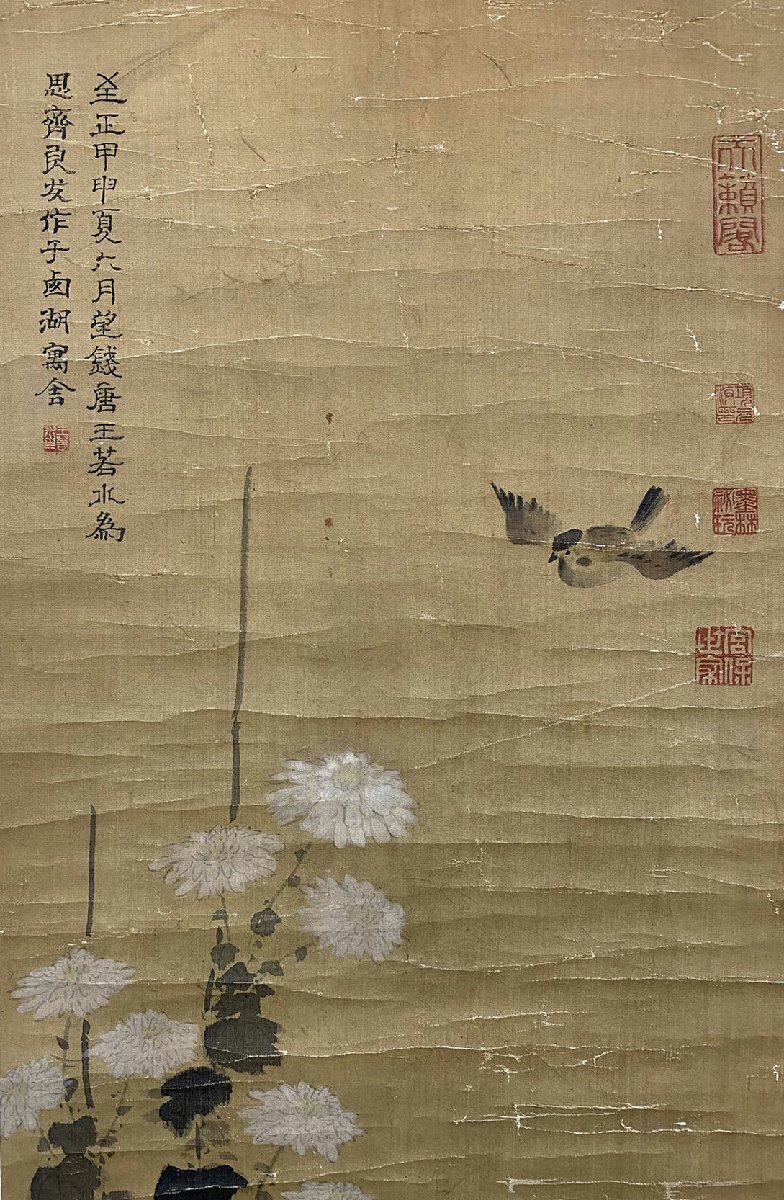 至正甲申夏六月望錢唐王若水為
思齊良友作于鹵湖寓舍
天籟閣
墨林
宮保
世家